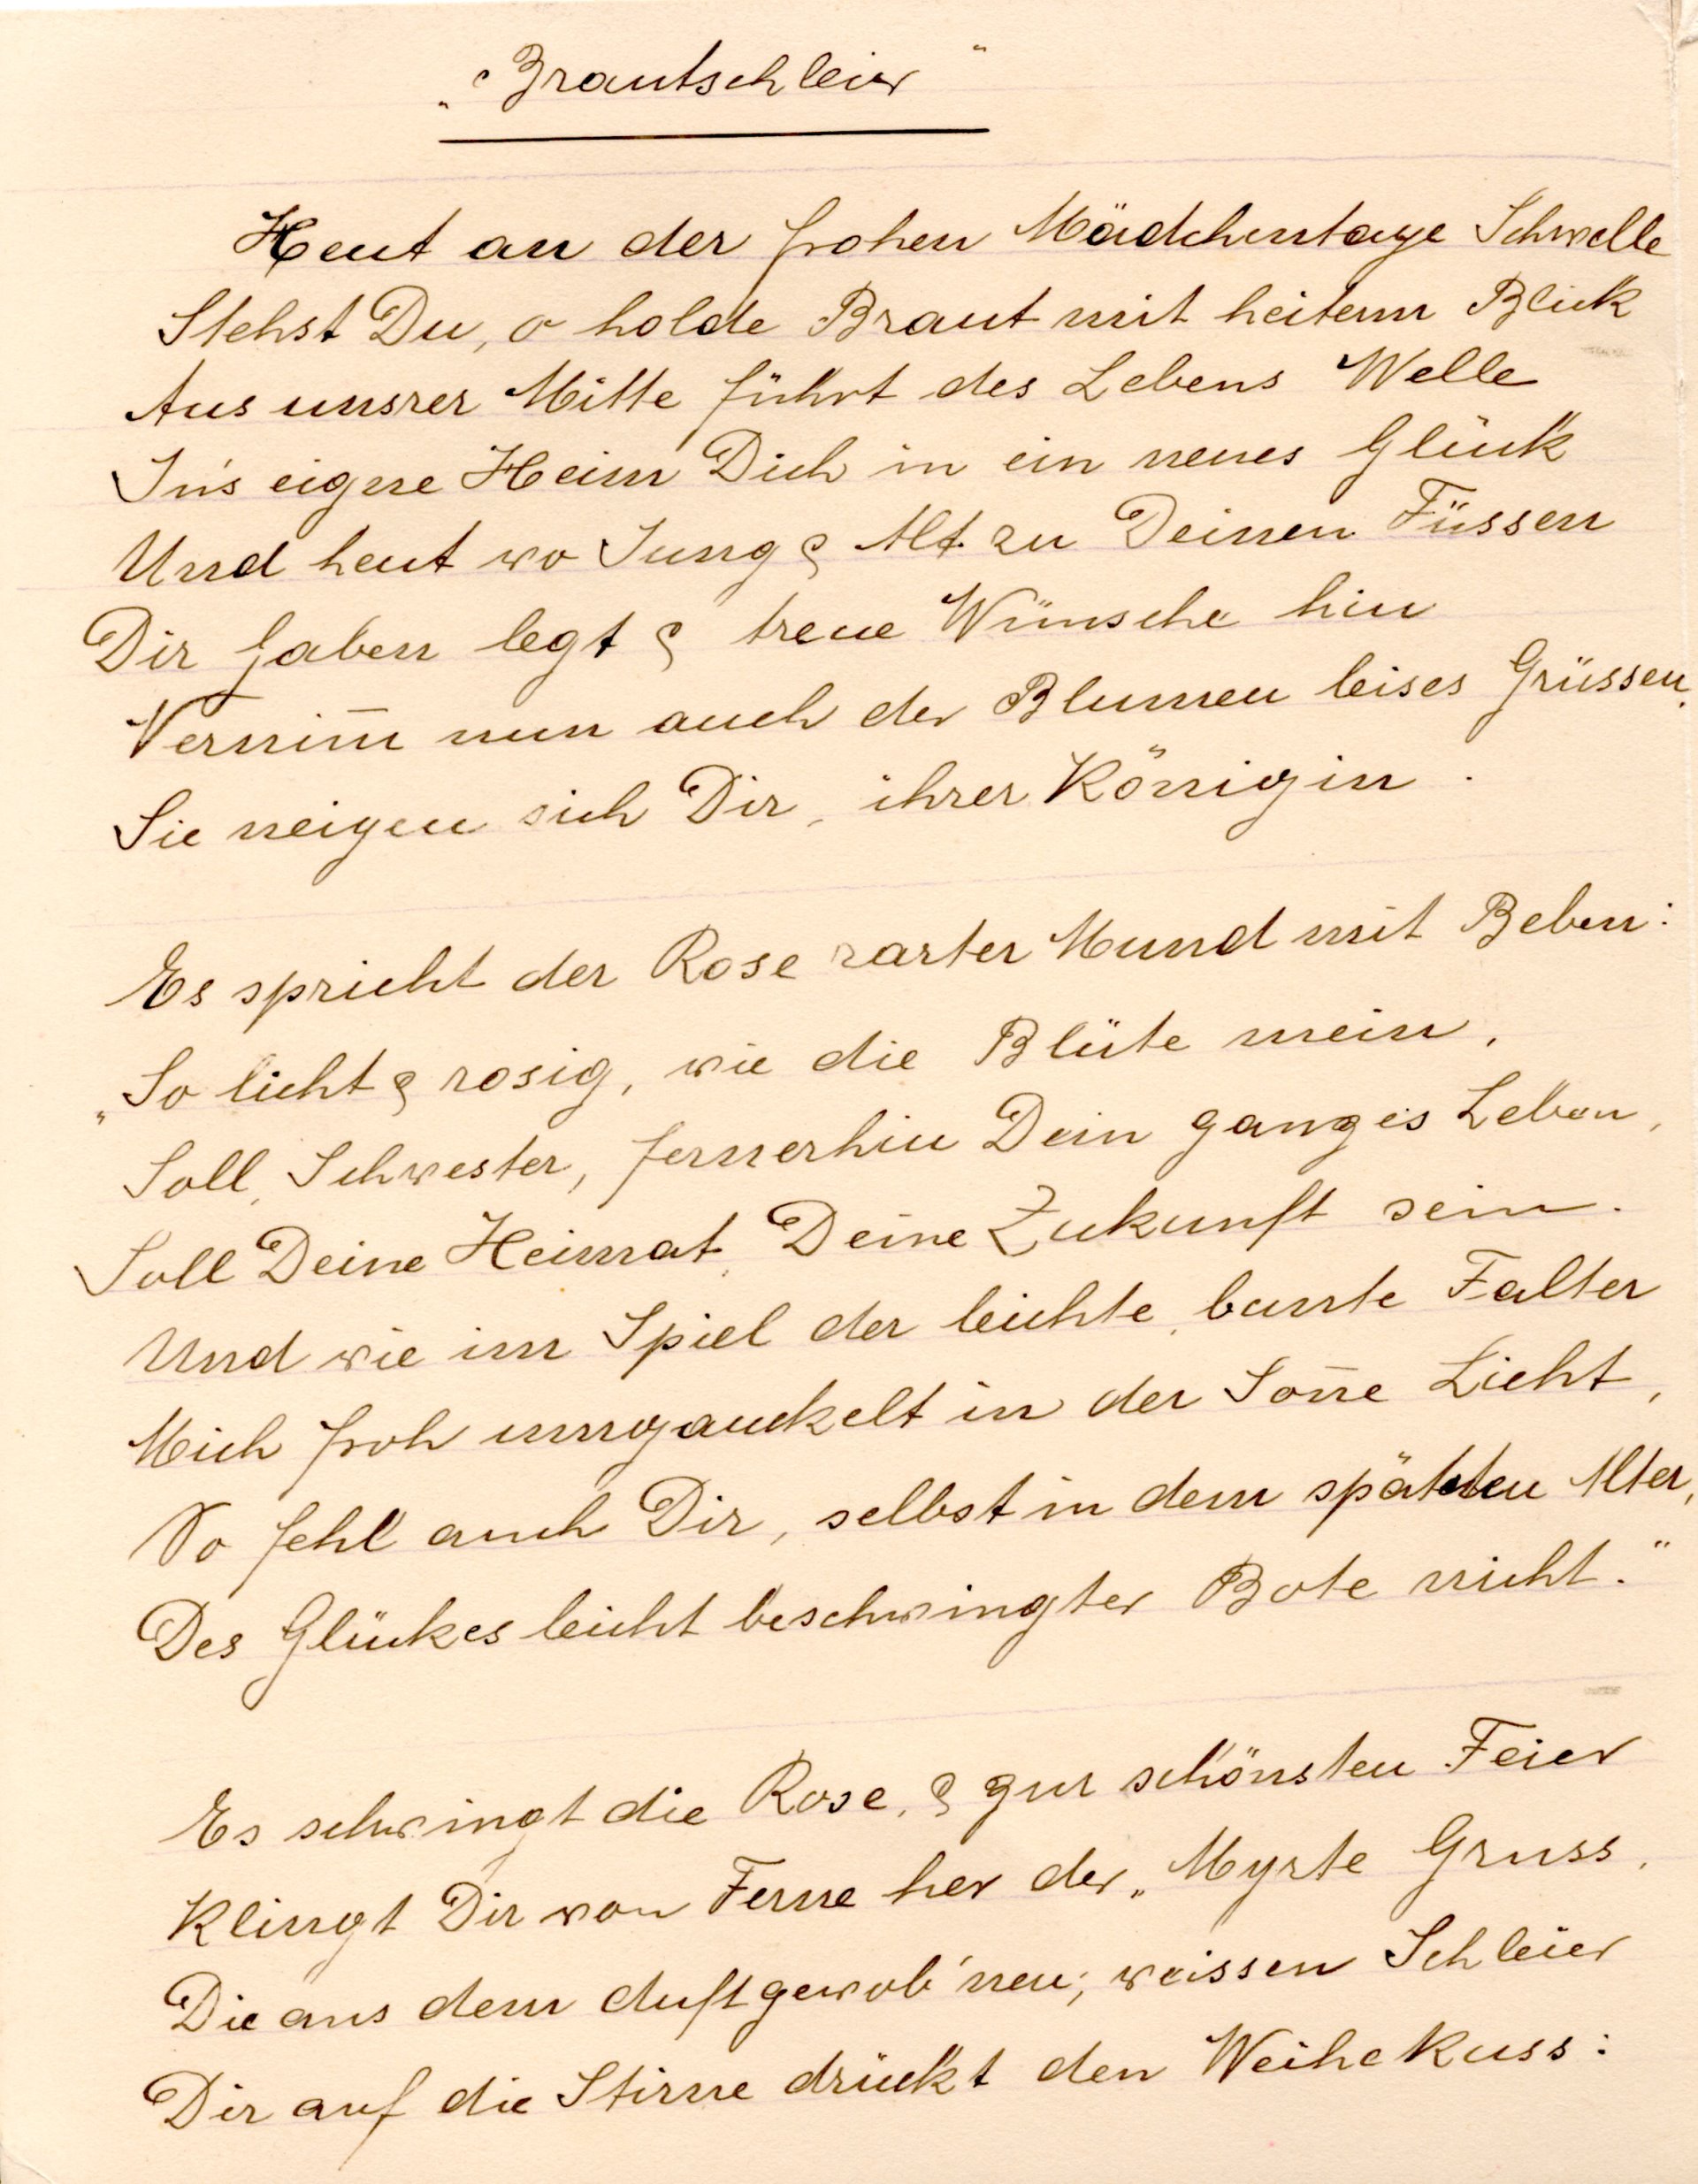 „Brautschleier"
Heut an der frohen Mädchentage Schwelle
Stehst Du, o holde Braut mit heiterm Blick
Aus unsrer Mitte führt des Lebens Welle
In's eigne Heim Dich in ein neues Glück
Und heut wo Jung & Alt zu Deinen Füssen
Dir Gaben legt & treue Wünsche hin
Vernim̄ nun auch der Blumen leises Grüssen,
Sie neigen sich Dir, ihrer Königin.
Es spricht der Rose zarter Mund mit Beben:
„So licht & rosig, wie die Blüte mein,
Soll, Schwester, fernerhin Dein ganzes Leben,
Soll Deine Heimat, Deine Zukunft sein.
Und wie im Spiel der leichte, bunte Falter
Mich froh umgauckelt in der Son̄e Licht,
So fehl' auch Dir, selbst in dem spätsten Alter,
Des Glückes leicht beschwingter Bote nicht."
Es schwingt die Rose, & zur schönsten Feier
Klingt Dir von Ferne her der „Myrte Gruss,
Die aus dem duftgewob'nen, weissen Schleier
Dir auf die Stirne drückt den Weihekuss: